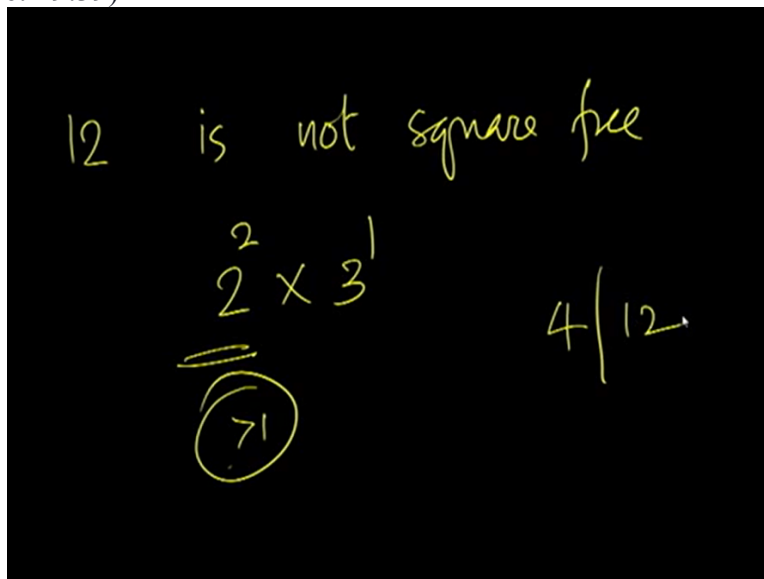 12 is not square free
2² × 3¹
4|12
>1